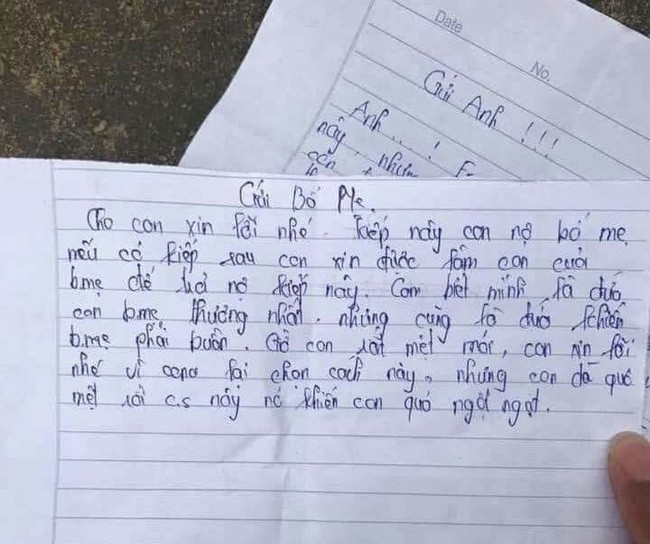 Date
No.
Gửi Anh !!!
Anh...! E
này, nhưng
cần
Gửi Bố Mẹ.
Cho con xin lỗi nhé. Kiếp này con nợ bố mẹ,
nếu có kiếp sau con xin được làm con của
b.mẹ để trả nợ kiếp này. Con biết mình là đứa
con b.mẹ thương nhất. nhưng cũng là đứa khiến
b.mẹ phải buồn. Giờ con rất mệt mỏi, con xin lỗi
nhé vì con lại chọn cách này, nhưng con đã quá
mệt rồi c.s này nó khiến con quá ngột ngạt.